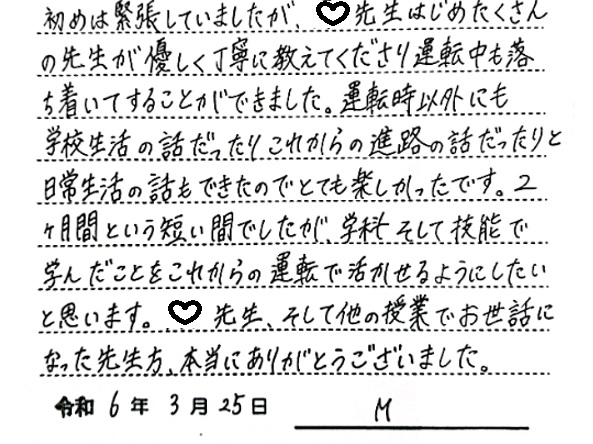 初めは緊張していましたが、♡先生はじめたくさん
の先生が優しく丁寧に教えてくださり運転中も落
ち着いてすることができました。運転時以外にも
学校生活の話だったりこれからの進路の話だったりと
日常生活の話もできたのでとても楽しかったです。2
ヶ月間という短い間でしたが、学科そして技能で
学んだことをこれからの運転で活かせるようにしたい
と思います。♡先生、そして他の授業でお世話に
なった先生方、本当にありがとうございました。
令和 6 年 3 月 25 日 M